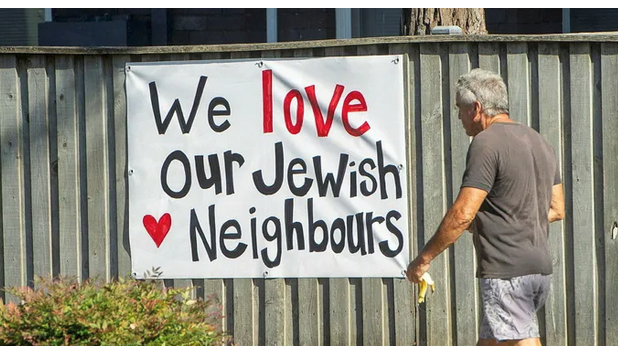 We love
Our Jewish
Neighbours